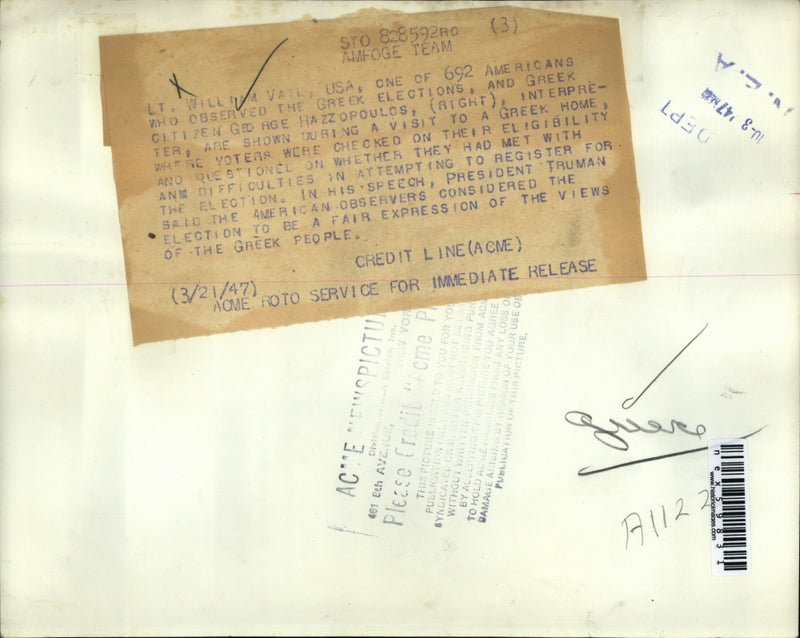 STO 828592RO (3)
AMFOGE TEAM
LT. WILLIAM VAIL, USA, ONE OF 692 AMERICANS
WHO OBSERVED THE GREEK ELECTIONS, AND GREEK
CITIZEN GEORGE HAZZOPOULOS, (RIGHT), INTERPRE-
TER, ARE SHOWN DURING A VISIT TO A GREEK HOME,
WHERE VOTERS WERE CHECKED ON THEIR ELIGIBILITY
AND QUESTIONED ON WHETHER THEY HAD MET WITH
ANN DIFFICULTIES IN ATTEMPTING TO REGISTER FOR
THE ELECTION. IN HIS SPEECH, PRESIDENT TRUMAN
SAID THE AMERICAN OBSERVERS CONSIDERED THE
ELECTION TO BE A FAIR EXPRESSION OF THE VIEWS
OF THE GREEK PEOPLE.
CREDIT LINE (ACME)
(3/21/47)
ACME ROTO SERVICE FOR IMMEDIATE RELEASE
DEPT
ACME NEWSPICTU
461 8th AVENUE, NEW YOR
Please Credit "Acme P
THIS PICTURE IS TO YOU FOR YOU
PUBLICATION
SYNDICATED
WITHOUT
BY ACCEPTING THIS PICTURE YOU AGREE
TO HOLD ACME FROM ANY LOSS O
DAMAGE ARISING BY REASON OF YOUR USE O
PUBLICATION OF THIS PICTURE.
A1122
www.historicimages.com
nex59831